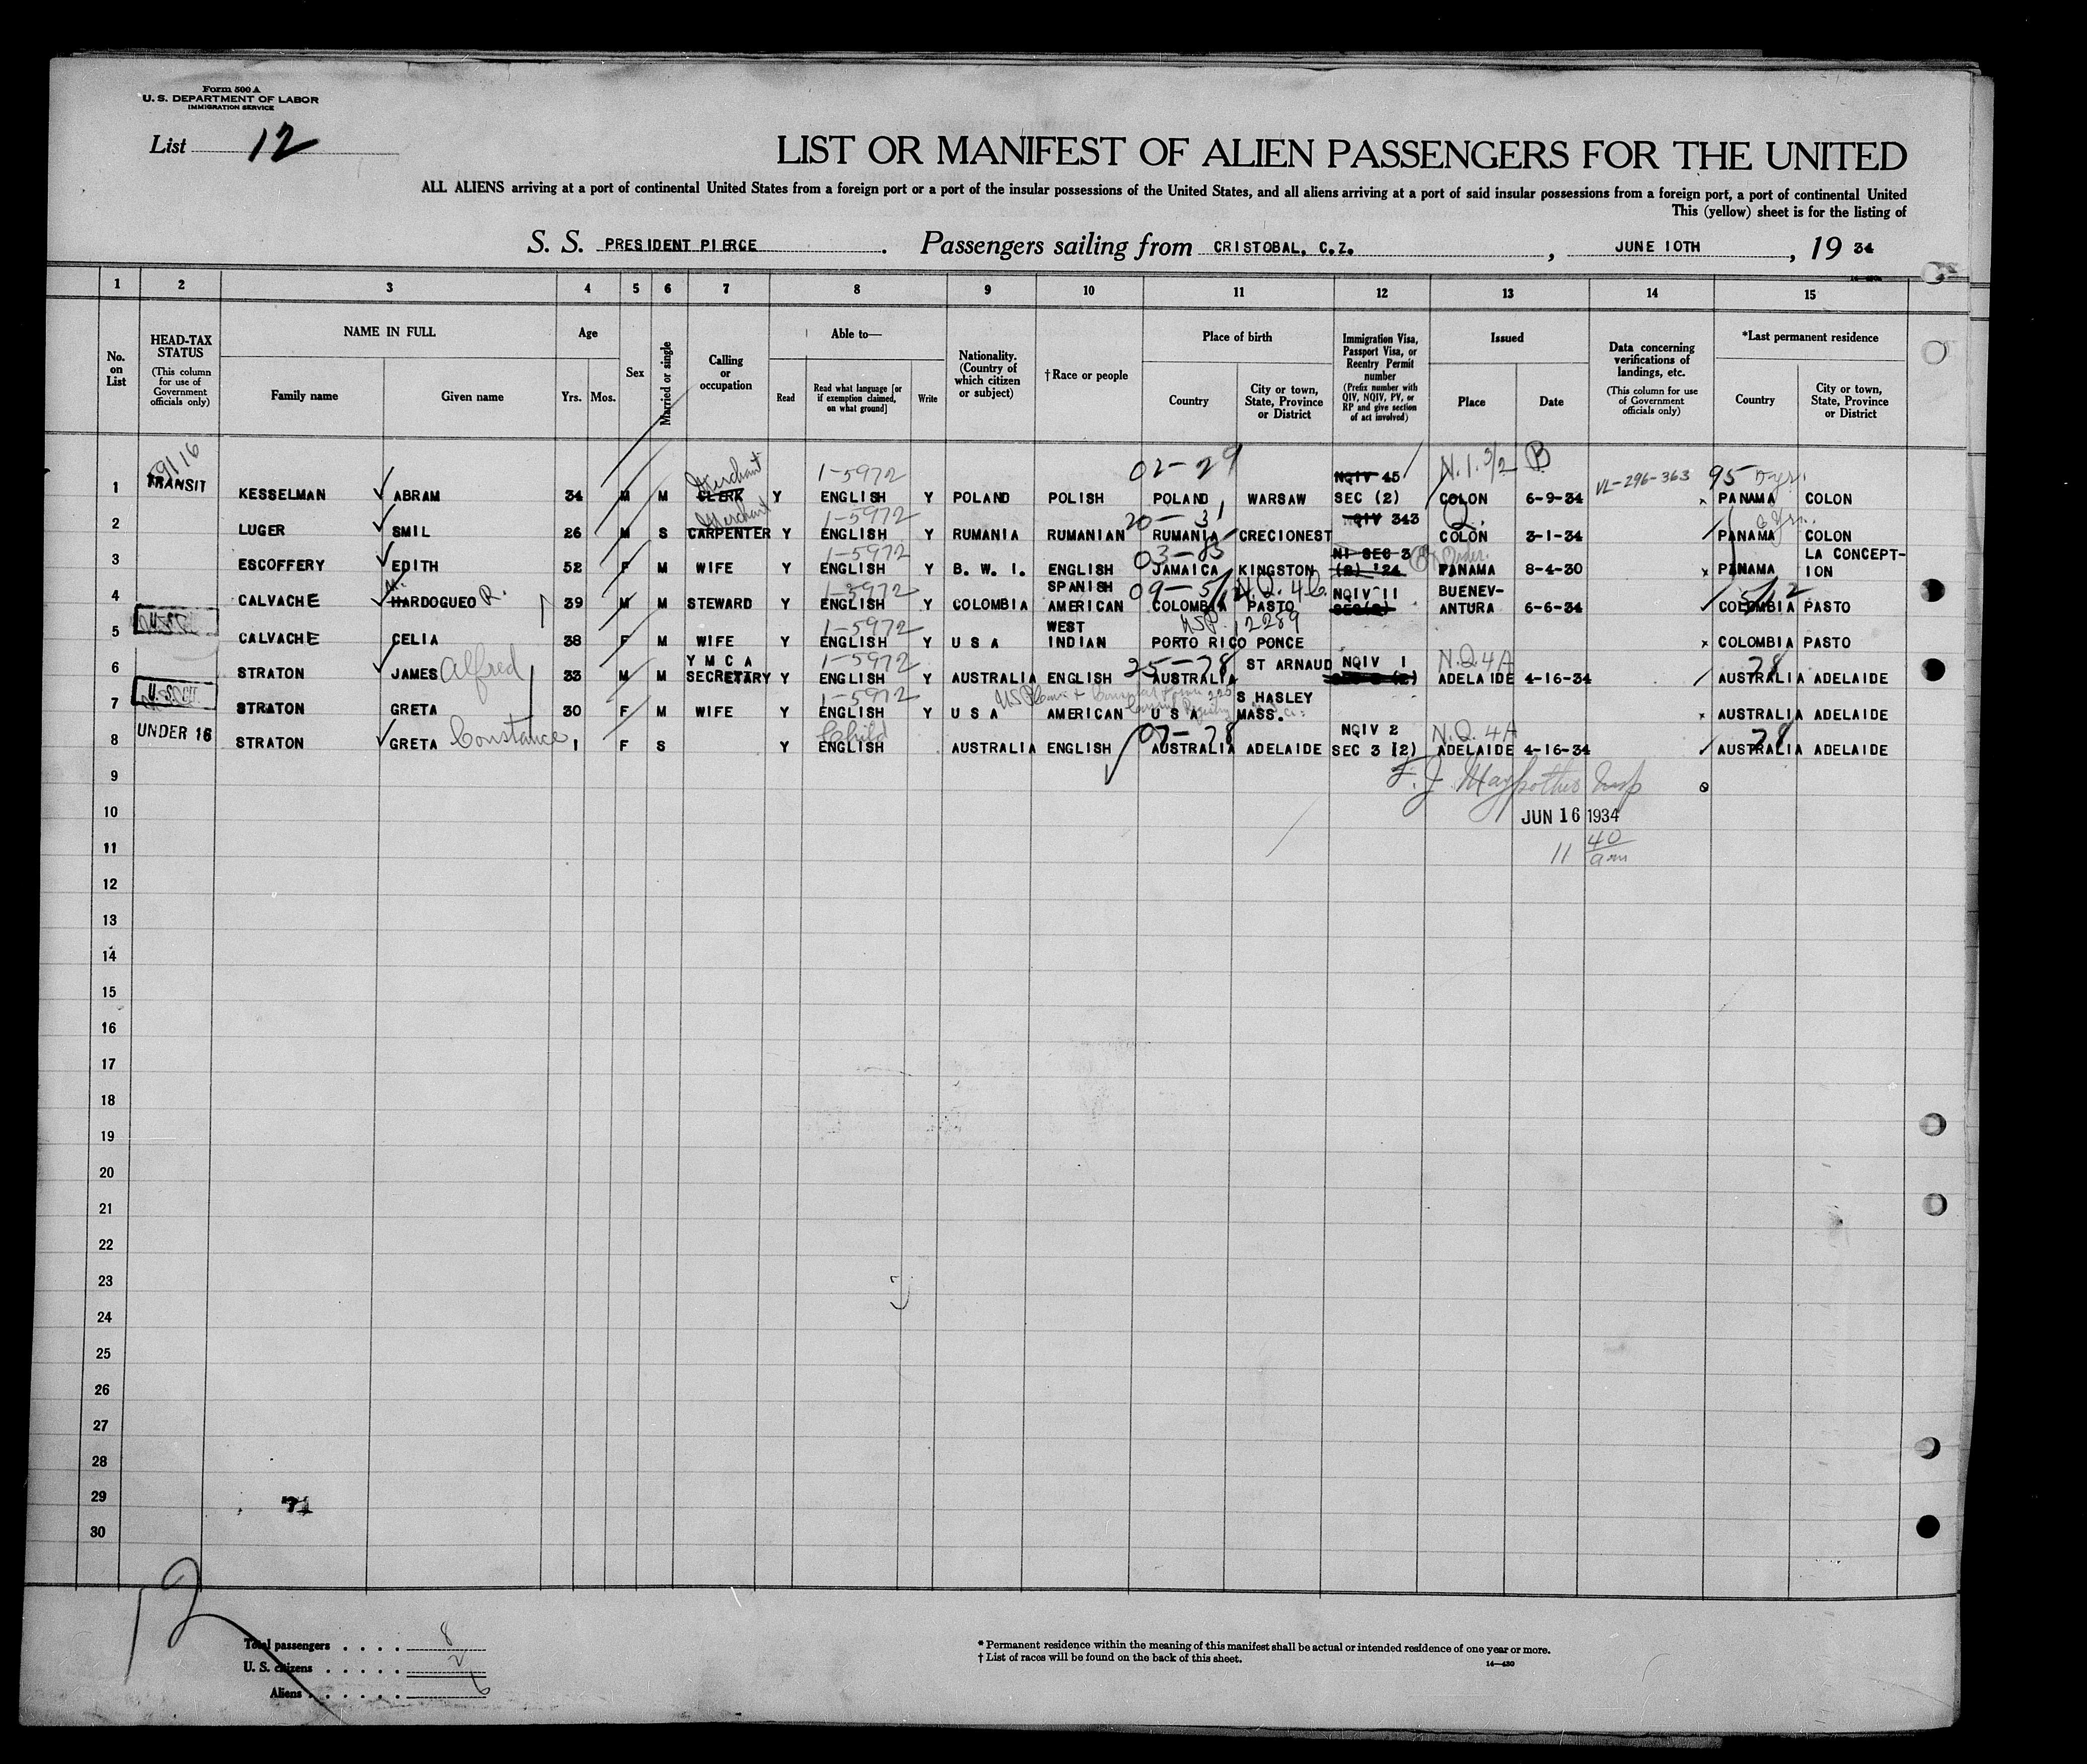 Form 500 A
U. S. DEPARTMENT OF LABOR
IMMIGRATION SERVICE
List 12
LIST OR MANIFEST OF ALIEN PASSENGERS FOR THE UNITED
ALL ALIENS arriving at a port of continental United States from a foreign port or a port of the insular possessions of the United States, and all aliens arriving at a port of said insular possessions from a foreign port, a port of continental United
This (yellow) sheet is for the listing of
S. S. PRESIDENT PIERCE . Passengers sailing from CRISTOBAL, C.Z. , JUNE 10TH , 19 34
1 2 3 4 5 6 7 8 9 10 11 12 13 14 15
No. on List
HEAD-TAX STATUS (This column for use of Government officials only)
NAME IN FULL
Family name Given name
Age
Yrs. Mos.
Sex
Married or single
Calling or occupation
Able to—
Read Read what language [or if exemption claimed, on what ground] Write
Nationality. (Country of which citizen or subject)
† Race or people
Place of birth
Country City or town, State, Province or District
Immigration Visa, Passport Visa, or Reentry Permit number (Prefix number with QIV, NQIV, PV, or RP and give section of act involved)
Issued
Place Date
Data concerning verifications of landings, etc. (This column for use of Government officials only)
*Last permanent residence
Country City or town, State, Province or District
59116 Merchant 1-5972 02-29 NQIV 45 N.I. 3/2 B VL-296-363 95 5 yr.
1 TRANSIT KESSELMAN ABRAM 34 M M CLERK Y ENGLISH Y POLAND POLISH POLAND WARSAW SEC (2) COLON 6-9-34 PANAMA COLON
Merchant 1-5972 20-31 QIV 343 Q.
2 LUGER SMIL 26 M S CARPENTER Y ENGLISH Y RUMANIA RUMANIAN RUMANIA CRECIONEST COLON 3-1-34 PANAMA COLON
1-5972 03-85 NI SEC 3 LA CONCEPT-
3 ESCOFFERY EDITH 52 F M WIFE Y ENGLISH Y B. W. I. ENGLISH JAMAICA KINGSTON (2) '24 PANAMA 8-4-30 PANAMA ION
1-5972 SPANISH 09-51 N.Q. 4C NQIV 11 BUENEV- 512
4 CALVACHE HARDOGUEO R. 39 M M STEWARD Y ENGLISH Y COLOMBIA AMERICAN COLOMBIA PASTO SEC(2) ANTURA 6-6-34 COLOMBIA PASTO
1-5972 WEST USP. 12289
5 CALVACHE CELIA 38 F M WIFE Y ENGLISH Y U S A INDIAN PORTO RICO PONCE COLOMBIA PASTO
Y M C A 1-5972 25-78 ST ARNAUD NQIV 1 N.Q. 4A 78
6 STRATON JAMES Alfred 33 M M SECRETARY Y ENGLISH Y AUSTRALIA ENGLISH AUSTRALIA ADELAIDE 4-16-34 AUSTRALIA ADELAIDE
1-5972 S HASLEY
7 STRATON GRETA 30 F M WIFE Y ENGLISH Y U S A AMERICAN U S A MASS. AUSTRALIA ADELAIDE
UNDER 16 Child 07-78 NQIV 2 N.Q. 4A 78
8 STRATON GRETA Constance 1 F S Y ENGLISH AUSTRALIA ENGLISH AUSTRALIA ADELAIDE SEC 3 (2) ADELAIDE 4-16-34 AUSTRALIA ADELAIDE
9
10 JUN 16 1934
11 11 40 am
12
13
14
15
16
17
18
19
20
21
22
23
24
25
26
27
28
29
30
12
Total passengers . . . . 8
U. S. citizens . . . . . 2
Aliens . . . . . . 6
* Permanent residence within the meaning of this manifest shall be actual or intended residence of one year or more.
† List of races will be found on the back of this sheet.
14—430